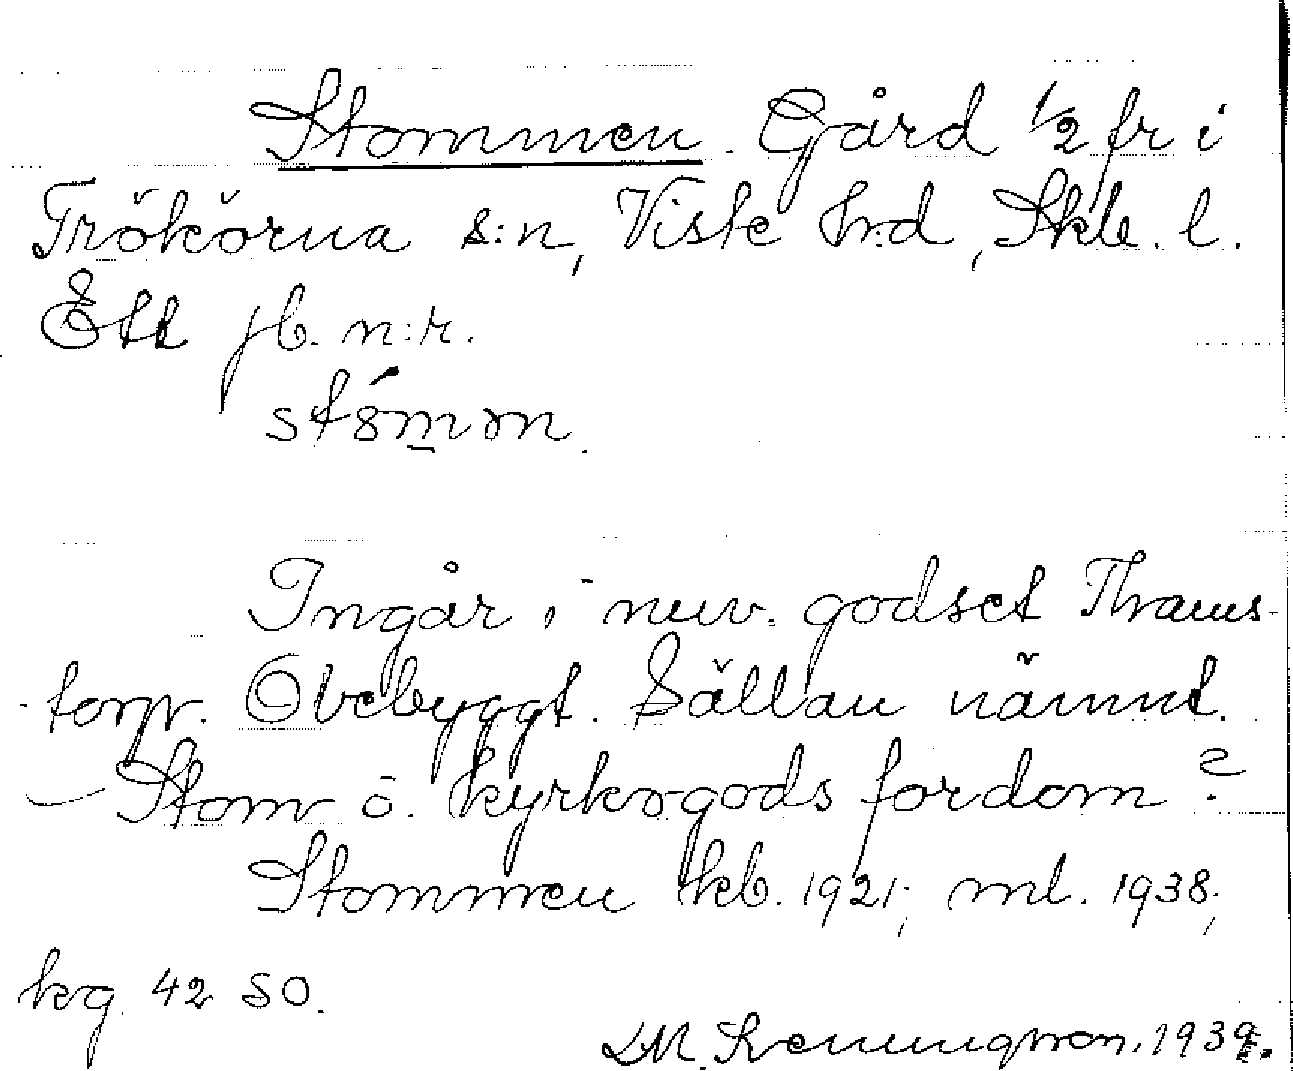 Stommen. Gård 1/2 fr i
Trökörna s:n, Viste hrd, Skb. l.
Ett jb. n:r.
Ingår i nuv. godset Thams-
torp. Obebyggt. Sällan nämnt.
Stom o. kyrkogods fordom?
Stommen tkb. 1921; ml. 1938;
kg 42 SO.
1939.